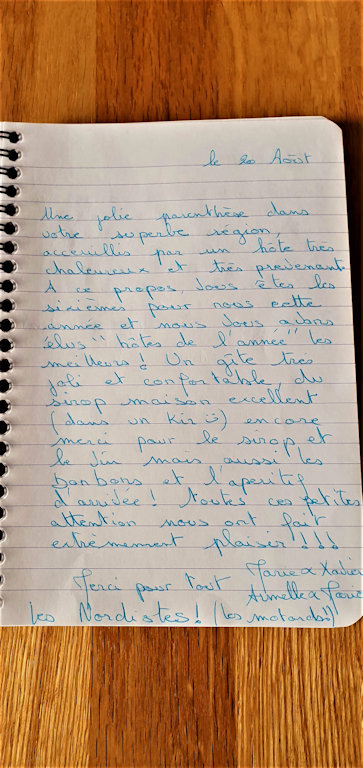 le 20 Août
Une jolie parenthèse dans
votre superbe région,
acceuillis par un hôte très
chaleureux et très prévenante
A ce propos, vous êtes les
sixièmes pour nous cette
année et nous vous avons
élus "hôtes de l'année" les
meilleurs! Un gîte très
joli et confortable, du
sirop maison excellent
(dans un Kir :)) encore
merci pour le sirop et
le vin mais aussi les
bonbons et l'apéritif
d'arrivée! toutes ces petites
attention nous ont fait
extrèmement plaisir!!!
Merci pour tout
Marie & Xavier
Armelle &
les Nordistes! (les motards!)